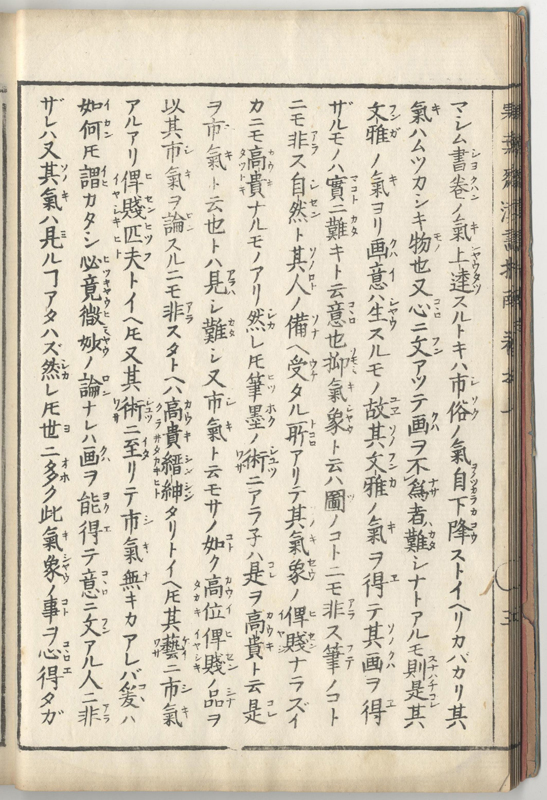 マシム書卷ノ氣上達スルトキハ市俗ノ氣自下降ストイヘリカバカリ其
氣ハムツカシキ物也又心ニ文アツテ画ヲ不爲者難シナトアルモ則是其
文雅ノ氣ヨリ画意ハ生スルモノ故其文雅ノ氣ヲ得テ其画ヲ得
ザルモノハ實ニ難キト云意也抑氣象ト云ハ圖ノコトニモ非ス筆ノコト
ニモ非ス自然ト其人ノ備ヘ受タル所アリテ其氣象ノ俾賤ナラズイ
カニモ高貴ナルモノアリ然レ𪜈筆墨ノ術ニアラ子ハ是ヲ高貴ト云是
ヲ市氣ト云也トハ見シ難シ又市氣ト云モサノ如ク高位俾賤ノ品ヲ
以其市氣ヲ論スルニモ非スタトヘハ高貴縉紳タリトイヘ𪜈其藝ニ市氣
アルアリ俾賤匹夫トイヘ𪜈又其術ニ至リテ市氣無キカアレバ爰ハ
如何𪜈謂カタシ必竟微妙ノ論ナレハ画ヲ能得テ意ニ文アル人ニ非
ザレハ又其氣ハ見ルヿアタハズ然レ𪜈世ニ多ク此氣象ノ事ヲ心得タガ